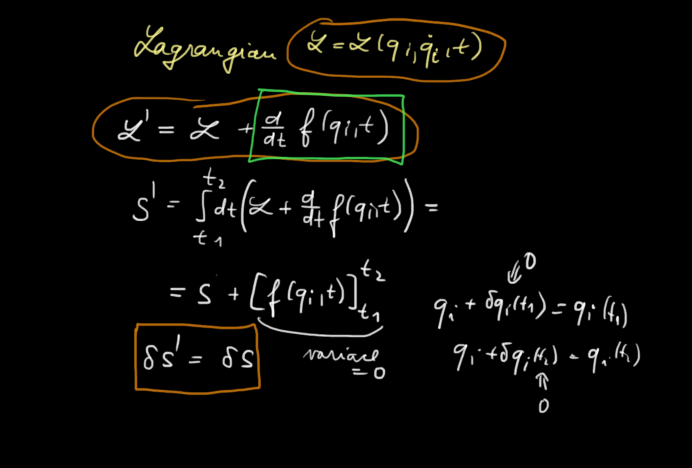 Lagrangian ℒ = ℒ(qi, q̇i, t)
ℒ' = ℒ + d/dt f(qi, t)
S' = ∫_{t1}^{t2} dt(ℒ + d/dt f(qi, t)) =
= S + [f(qi, t)]_{t1}^{t2}
variace = 0
δS' = δS
0
qi + δqi(t1) = qi(t1)
qi + δqi(t2) = qi(t2)
0